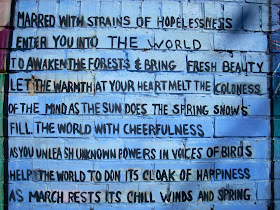 MARRED WITH STRAINS OF HOPELESSNESS
ENTER YOU INTO THE WORLD
TO AWAKEN THE FORESTS & BRING FRESH BEAUTY
LET THE WARMTH AT YOUR HEART MELT THE COLDNESS
OF THE MIND AS THE SUN DOES THE SPRING SNOWS
FILL THE WORLD WITH CHEERFULNESS
AS YOU UNLEASH UNKNOWN POWERS IN VOICES OF BIRDS
HELP THE WORLD TO DON ITS CLOAK OF HAPPINESS
AS MARCH RESTS ITS CHILL WINDS AND SPRING